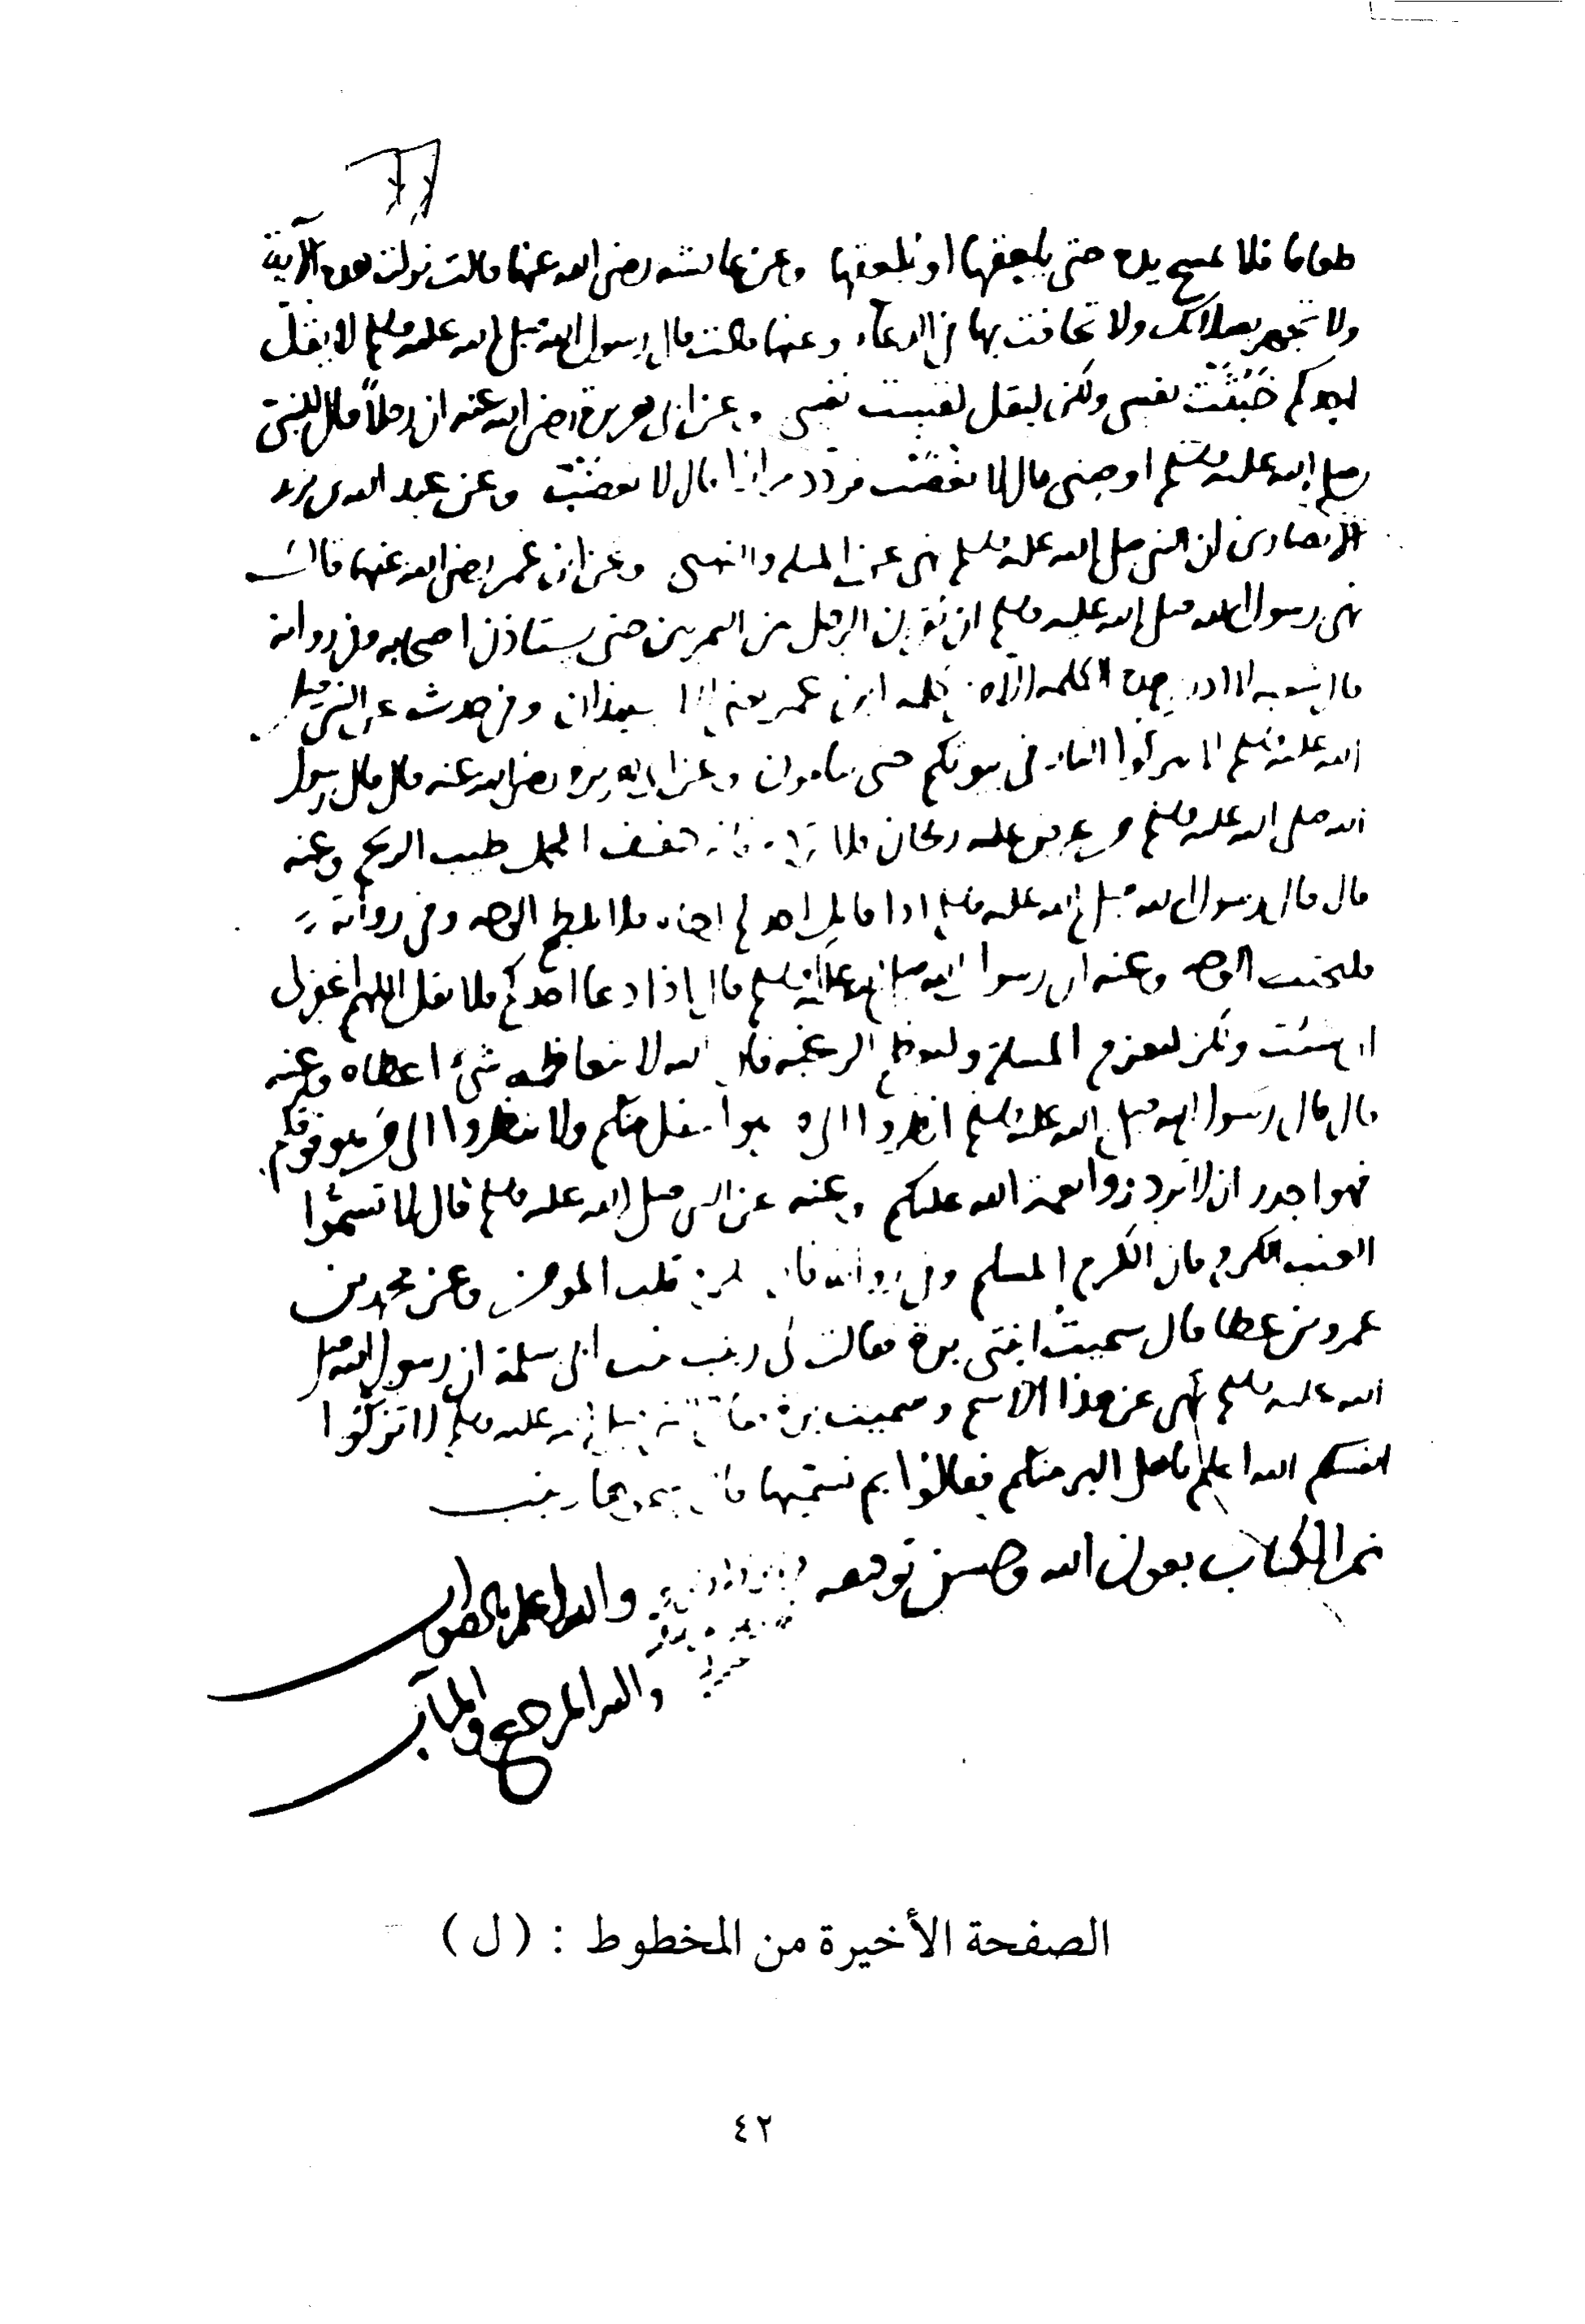 طعاما فلا يمسح يده حتى يلعقها او يلعقها وعن عائشه رضى الله عنها قالت نزلت هذه الآية
ولا تجهر بصلاتك ولا تخافت بها في الدعآء وعنها قالت قال رسول الله صلى الله عليه وسلم لا يقل
احدكم خَبُثَت نفسى ولكن ليقل لقست نفسى وعن ابى هريرة رضى الله عنه ان رجلاً قال للنبى
صلى الله عليه وسلم اوصنى قال لا تغضب فردد مرارا قال لا تغضب وعن عبد الله بن يزيد
الانصارى ان النبى صلى الله عليه وسلم نهى عن المثله والنهبى وعن ابن عمر رضى الله عنهما قال
نهى رسول الله صلى الله عليه وسلم ان يقرن الرجل بين التمرتين حتى يستاذن اصحابه وفى رواية
قال شعبه لا ارى هذه الكلمه الا من كلمه ابن عمر يعنى الا ستيذان وفى حديث عن النبى صلى
الله عليه وسلم لا تتركوا النار فى بيوتكم حتى تنامون وعن ابى هريره رضى الله عنه قال قال رسول
الله صلى الله عليه وسلم من عرض عليه ريحان فلا يرده فانه خفيف المحمل طيب الريح وعنه
قال قال رسول الله صلى الله عليه وسلم اذا قاتل احدكم اخاه فلا يلطم الوجه وفى رواية
فليجتنب الوجه وعنه ان رسول الله صلى الله عليه وسلم قال اذا دعا احدكم فلا يقل اللهم اغفرلى
ان شئت ولكن ليعزم المسلة وليعظم الرغبه فان الله لا يتعاظمه شئ اعطاه وعنه
قال قال رسول الله صلى الله عليه وسلم انظروا الى من هو اسفل منكم ولا تنظروا الى من هو فوقكم
فهو اجدر ان لا تزدروا نعمة الله عليكم وعنه عن النبى صلى الله عليه وسلم قال لا تسمُّوا
العنب الكرم فان الكرم المسلم وفى رواية فان الكرم قلب المومن وعن محمد بن
عمرو بن عطا قال سميت ابنتى برة فقالت لى زينب بنت ابى سلمة ان رسول الله صلى
الله عليه وسلم نهى عن هذا الاسم وسميت برة فقال النبى صلى الله عليه وسلم لا تزكّوا
انفسكم الله اعلم باهل البر منكم فقالوا بم نسمّيها قال سموها زينب
تم الكتاب بعون الله وحسن توفيقه والله اعلم بالصواب
واليه المرجع والمآب
الصفحة الأخيرة من المخطوط : ( ل )
٤٢